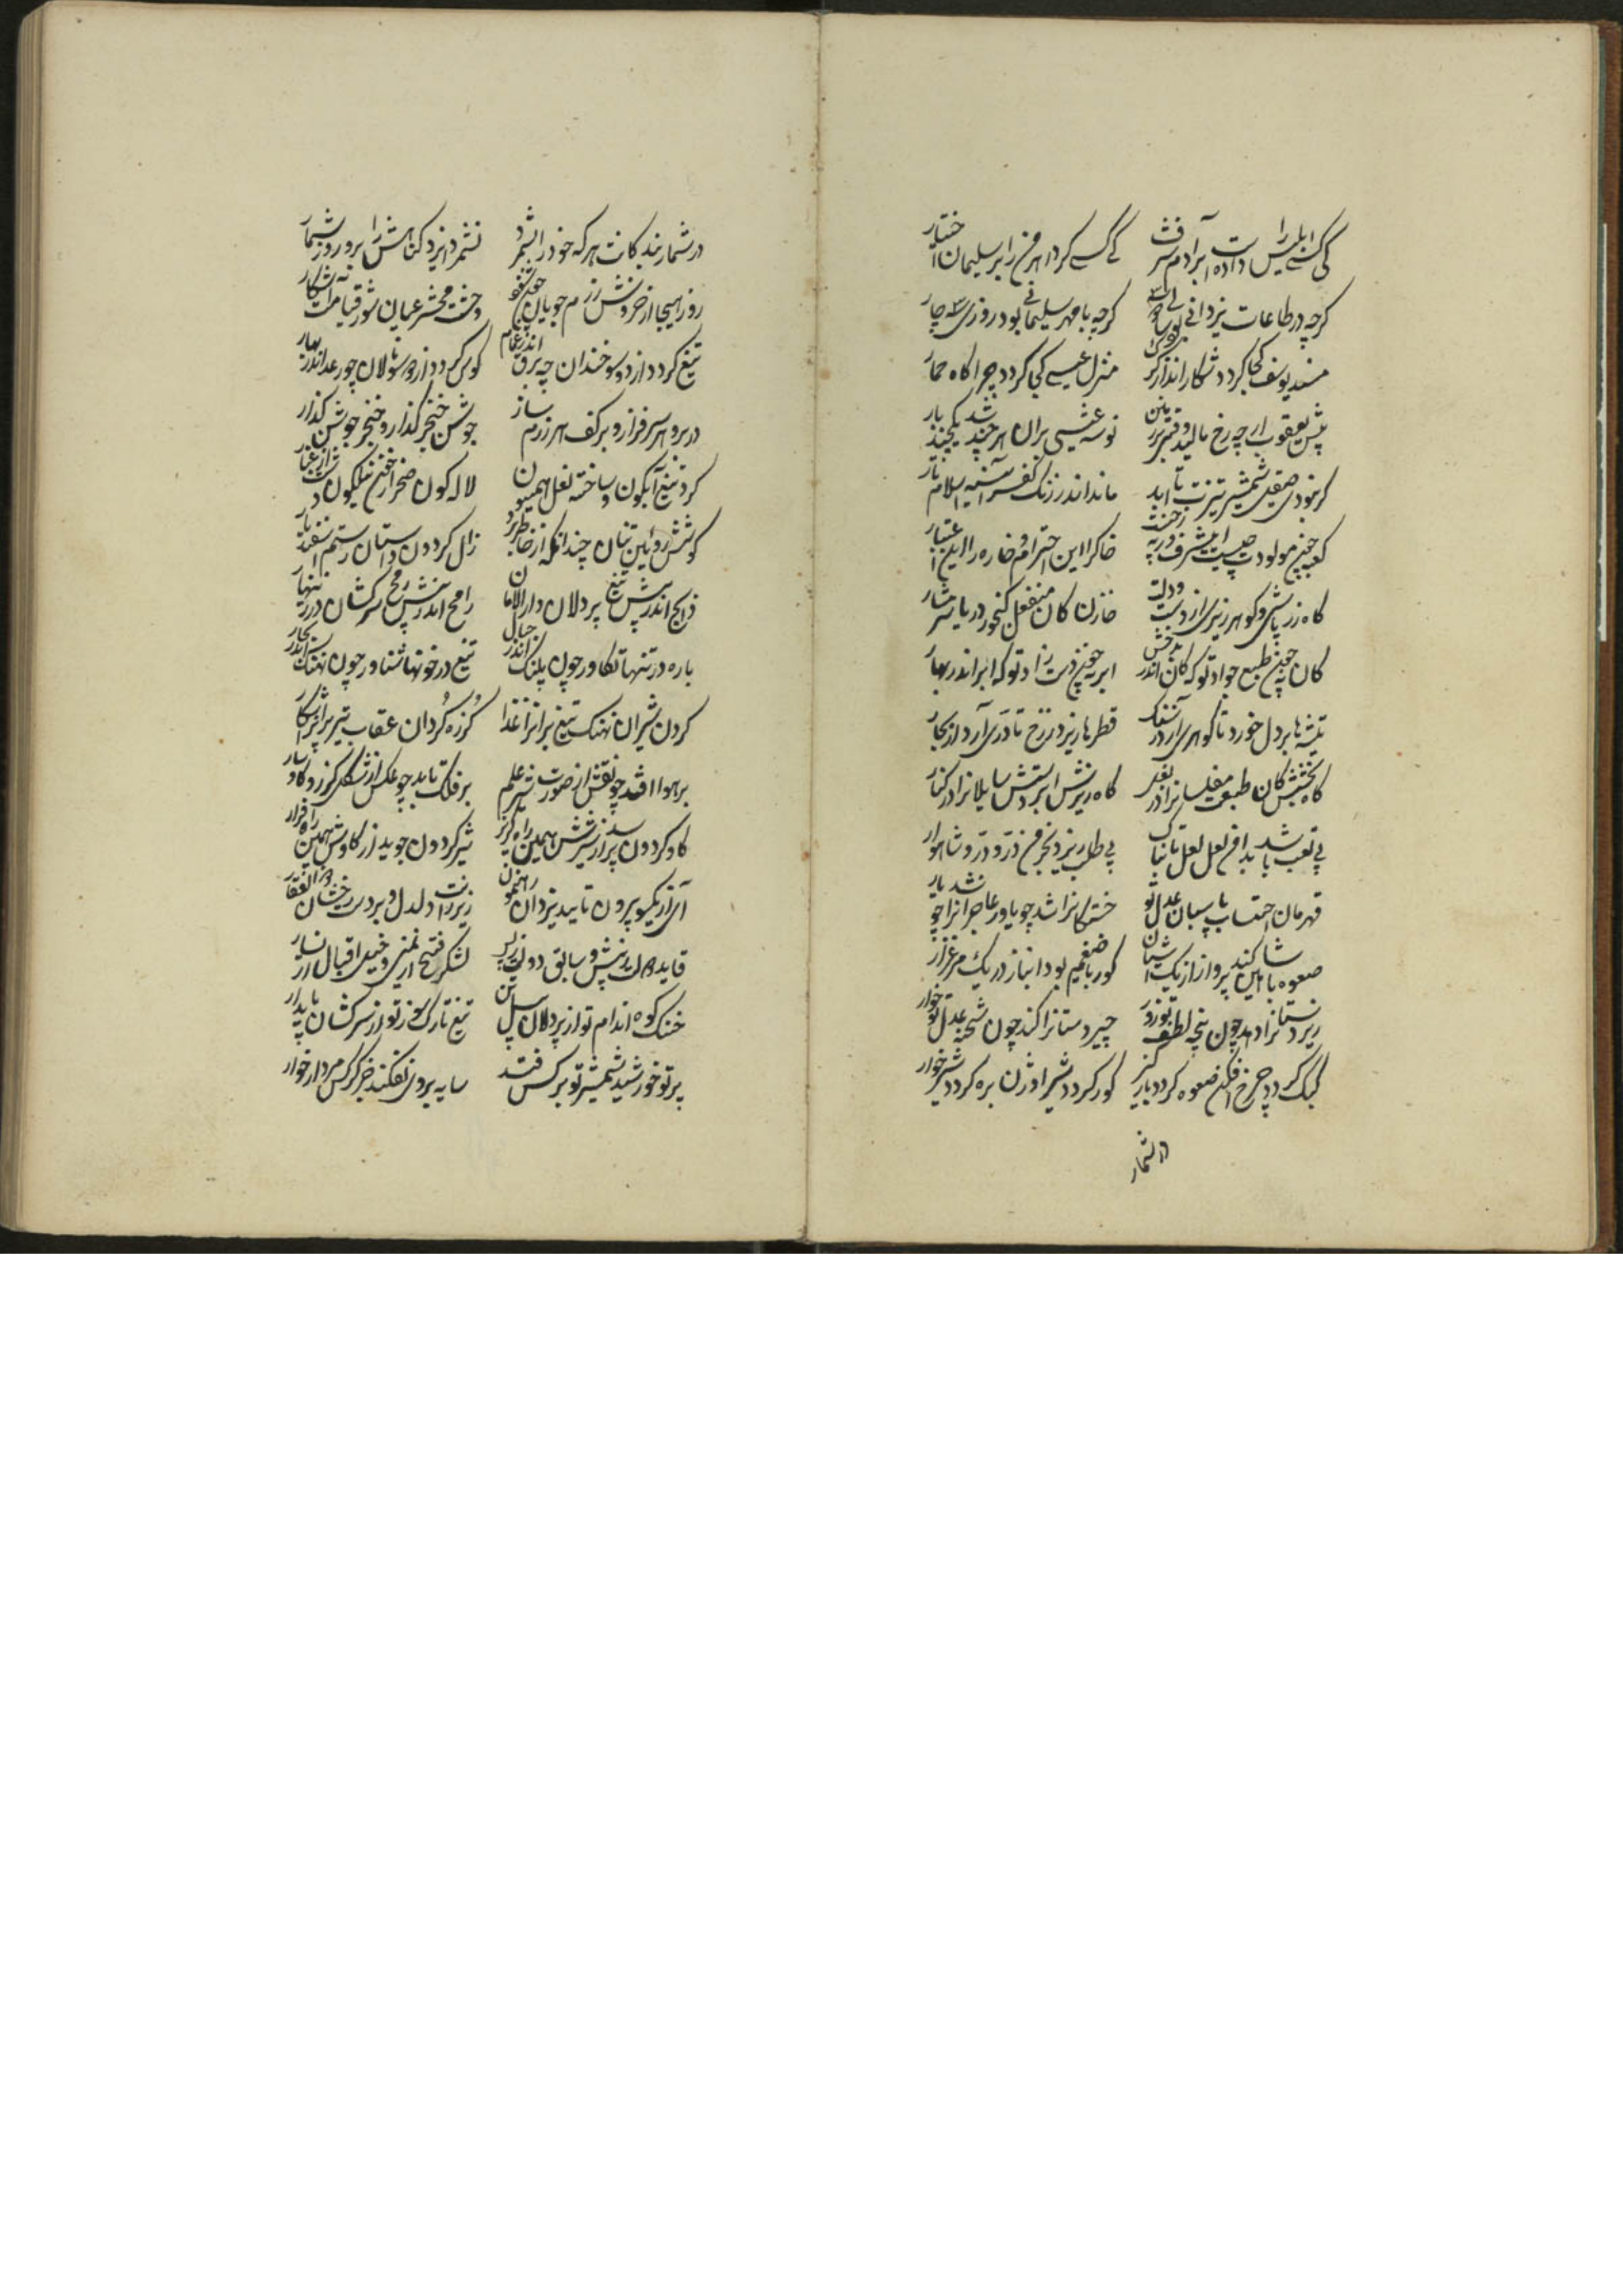 کی کسی ابلیس را دادست بر آدم شرف کی کسی کرد اهرمن را بر سلیمان اختیار
گرچه در طاعات یزدانی بود گرچه با مهر سلیمانی بود روزی سه چار
مسند یوسف کجا گردد شکار انداز گرگ منزل عیسی کجا گردد چراگاه حمار
پیش یعقوب ارچه رخ مالید و قیمت بر نوسه عیسی بران هر چند شد یکچند بار
گر نبودی صیقل شمشیر تیزت تا ابد ماند اندر زنگ کفر آیینه اسلام تار
کعبه چنین مولودت چیست این شرف ورنه خاک را این احترام و خاره را این اعتبار
گاه زر پاشی و گوهر ریزی از دست و دلت خازن کان منفعل گنجور دریا شرمسار
کان نه چون طبع جواد تو که کان اندر بدخش ابر نه چون دست راد تو که ابر اندر بهار
تیشه ها بر دل خورد تا گوهری آرد ز سنگ قطره ها ریزد ز رخ تا دری آرد از بحار
گاه بخشش کان طبعت مفلسانرا در بغل گاه ریزش ابر دستش سایلانرا در کنار
بی تعب باشد بدامن لعل لعل تابناک بی طلب ریزد بخرمن در و در شاهوار
قهرمان احتسابت پاسبان عدل تو خستگانرا شد چو یاور عاجزانرا شد چو یار
صعوه با شاهین کند پرواز از یک آشیان گور با ضیغم بود انباز در یک مرغزار
زیردستانرا دهد چون پنجه لطف تو زور چیردستانرا کند چون شحنه عدل تو خوار
کبک گردد چرخ افکن صعوه گردد باز گیر گور گردد شیر اوژن بره گردد شیر خوار
در شمار
در شمار بندگانت هر که خود را نشمرد نشمرد ایزد گناهش را بروز شمار
روز هیجا از خروش رزم جویان وحشت محشر عیان شور قیامت آشکار
تیغ گردد از دو سو خندان چو برق اندر غمام کوس گردد از دو سو نالان چو رعد اندر بهار
در بر و بر سر فراز و بر کف هر رزم ساز جوشن و خنجر گذار و خنجر جوشن گذار
کرد تیغ آبگون و ساخته نعل هیون لاله گون صحرا ز خون نیلگون دشت از غبار
کوشش رویین تنان چندانکه از خاطر برد زال گردون داستان رستم و اسفندیار
ذابح اندر پیش تیغ پردلان دارالامان رامح اندر پیش رمح سرکشان در زینهار
باره در تنها تکاور چون پلنگ اندر جبال تیغ در خونها شناور چون نهنگ اندر بحار
گردن شیران نهنگ تیغ برانرا غذا گرزه گردان عقاب تیر پرانرا شکار
بر هوا افتد چو نقش از صورت شیر علم بر فلک تابد چو عکس از شکل گرز گاوسار
گاو گردون پرسد از شیرش همین راه گریز شیر گردون جوید از گاوش همین راه فرار
آیی از یکسو برون تایید یزدان رهنمون زیر رانت دلدل و بر دست رخشان ذوالفقار
لشکر فتح از یمین و خیل اقبال از یسار
خنک کوه اندام تو از پردلان پیل تن تیغ تارک سوز تو از سرکشان پایدار
پرتو خورشید شمشیر تو بر کس فتد سایه بر وی نفکند جز کرکس مردارخوار